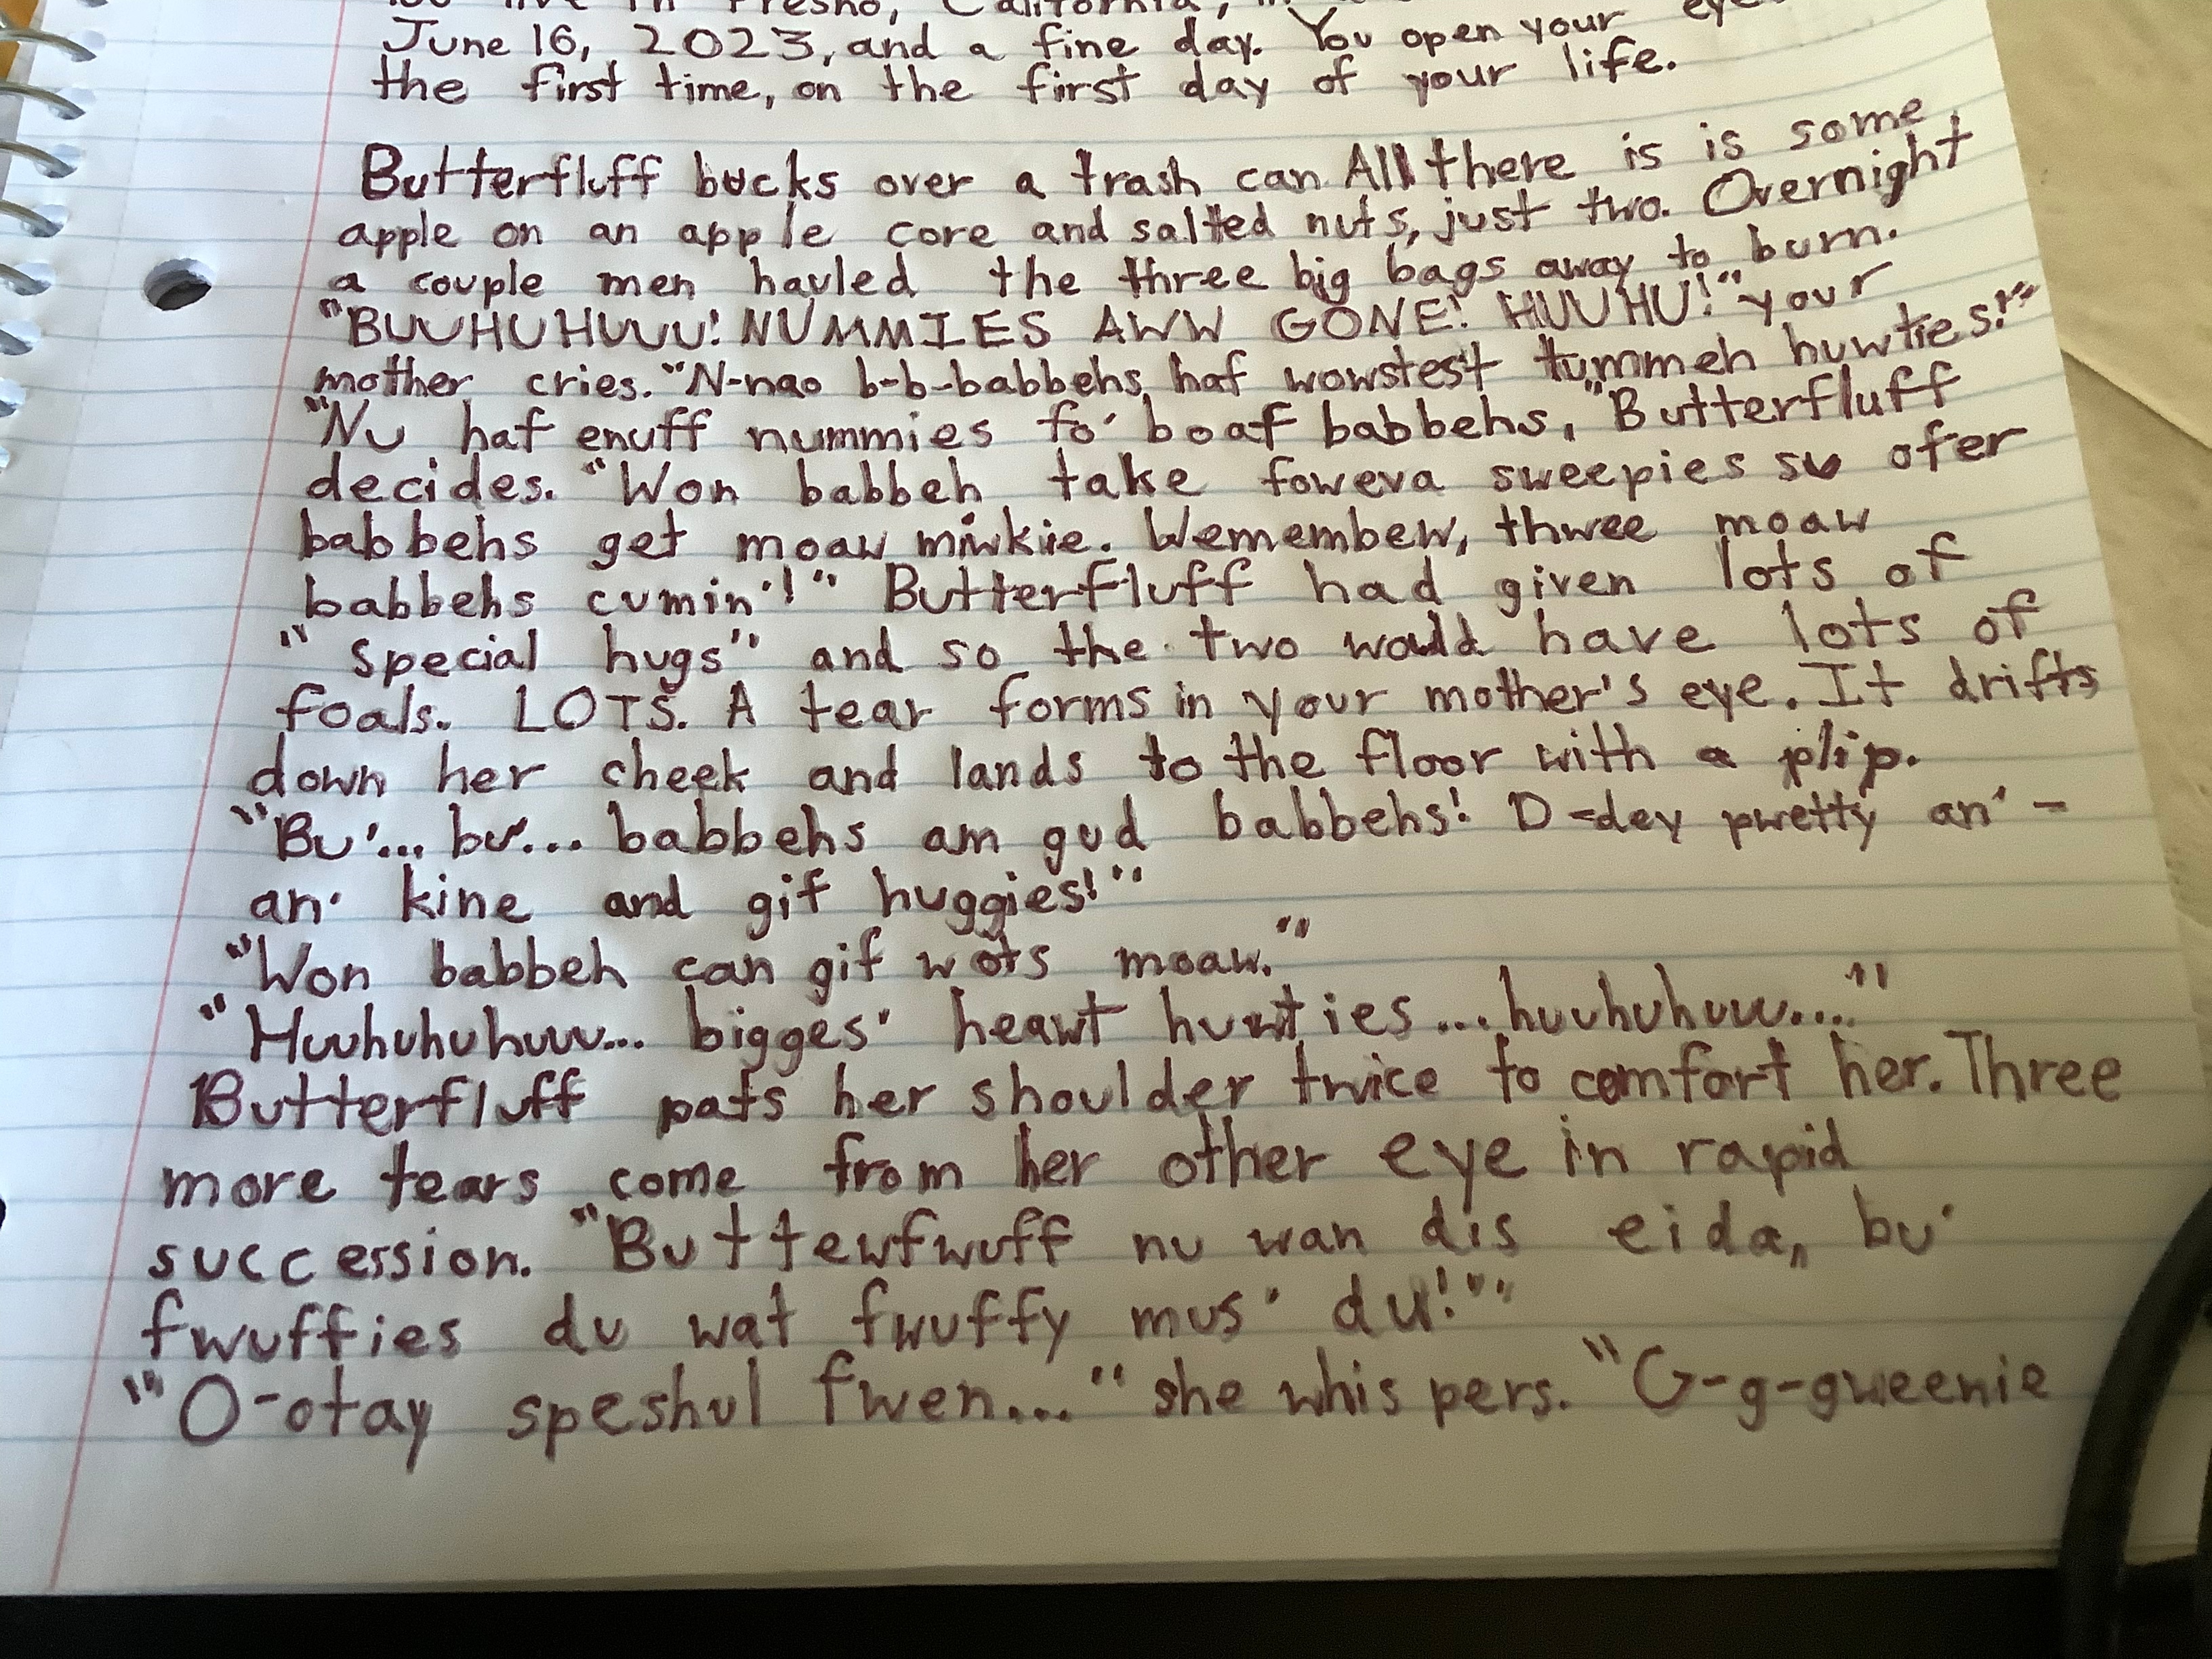 live in Fresno, California,
June 16, 2023, and a fine day. You open your eye
the first time, on the first day of your life.
Butterfluff bucks over a trash can All there is is some
apple on an apple core and salted nuts, just two. Overnight
a couple men hauled the three big bags away to burn.
"BUUHUHUUU! NUMMIES AWW GONE! HUUHU!" your
mother cries. "N-nao b-b-babbehs haf wowstest tummeh huwties!"
"Nu haf enuff nummies fo' boaf babbehs," Butterfluff
decides. "Won babbeh take foweva sweepies su ofer
babbehs get moaw miwkie. Wemembew, thwee moaw
babbehs cumin'!" Butterfluff had given lots of
"special hugs" and so the two would have lots of
foals. LOTS. A tear forms in your mother's eye. It drifts
down her cheek and lands to the floor with a plip.
"Bu'... bu'... babbehs am gud babbehs! D-dey pwetty an'-
an' kine and gif huggies!"
"Won babbeh can gif wots moaw."
"Huuhuhuhuuu... bigges' heawt huwties...huuhuhuuu...."
Butterfluff pats her shoulder twice to comfort her. Three
more tears come from her other eye in rapid
succession. "Buttewfwuff nu wan dis eida, bu'
fwuffies du wat fwuffy mus' du!"
"O-otay speshul fwen..." she whispers. "G-g-gweenie